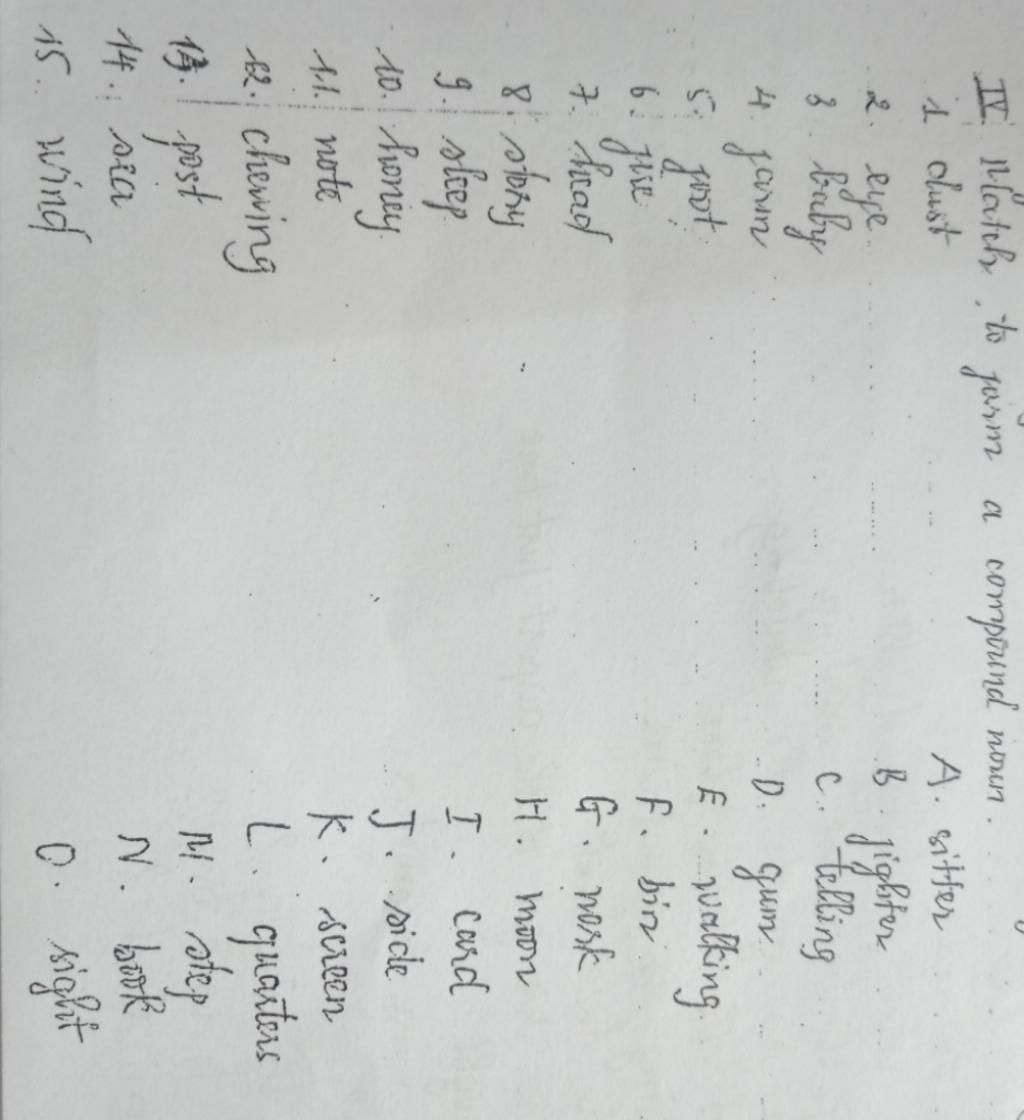 IV Match to form a compound noun.
1 dust A. sitter
2. eye B. fighter
3. baby C. telling
4. farm D. gum
5. foot E. walking
6. fire F. bin
7. head G. mask
8. story H. moon
9. sleep I. card
10. honey J. side
11. note K. screen
12. chewing L. quarters
13. post M. step
14. sea N. book
15. wind O. sight